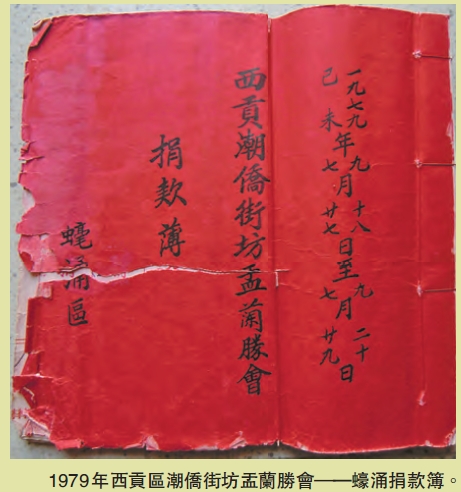 一九七九年九月十八日至九月二十日
己未 七 廿七 七 廿九
西貢潮僑街坊盂蘭勝會
捐欵薄
蠔涌區
1979年西貢區潮僑街坊盂蘭勝會——蠔涌捐款簿。